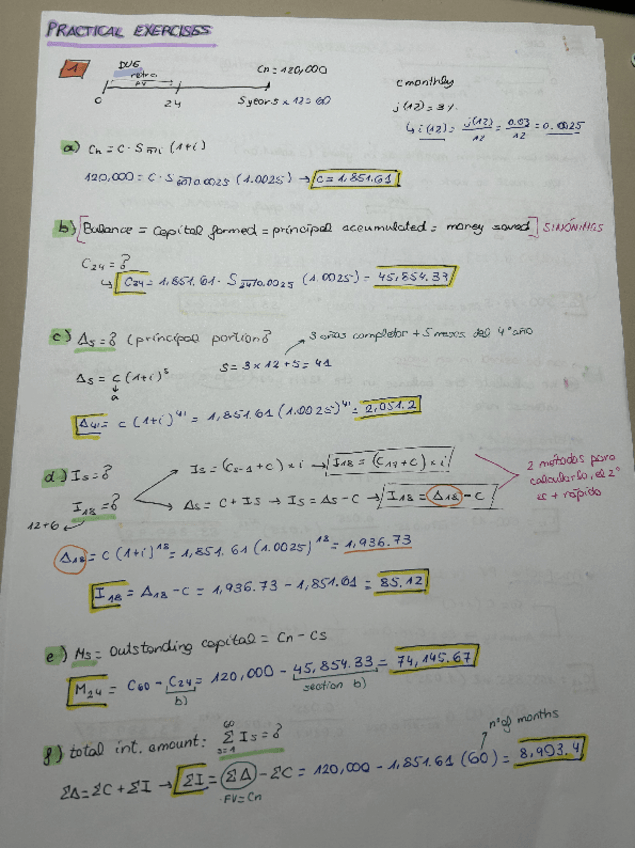 PRACTICAL EXERCISES
1
DUE
retro
FV
Cn = 120,000
0
24
5 years x 12 = 60
c monthly
j(12) = 3%
↳ i(12) = j(12)/12 = 0.03/12 = 0.0025
a) Cn = C · S n̅|i (1+i)
120,000 = C · S 60̅|0.0025 (1.0025) → C = 1,851.61
b) [Balance = Capital formed = principal accumulated = money saved] SINÓNIMOS
C24 = ?
↳ C24 = 1,851.61 · S 24̅|0.0025 (1.0025) = 45,854.33
c) Δs = ? (principal portion?
3 años completos + 5 meses del 4º año
Δs = c (1+i)^s
S = 3 x 12 + 5 = 41
a
Δ41 = c (1+i)^41 = 1,851.61 (1.0025)^41 = 2,051.2
d) Is = ?
Is = (Cs-1 + c) x i → I18 = (C17 + c) x i
I18 = ?
Δs = C + Is → Is = Δs - C → I18 = Δ18 - C
2 métodos para calcularlo, el 2º es + rápido
12+6
Δ18 = C (1+i)^18 = 1,851.61 (1.0025)^18 = 1,936.73
I18 = Δ18 - C = 1,936.73 - 1,851.61 = 85.12
e) Ms = Outstanding capital = Cn - Cs
M24 = C60 - C24 = 120,000 - 45,854.33 = 74,145.67
b)
section b)
f) total int. amount: 60 Σ s=1 Is = ?
nº of months
ΣΔ = ΣC + ΣI → ΣI = ΣΔ - ΣC = 120,000 - 1,851.61 (60) = 8,903.4
FV = Cn